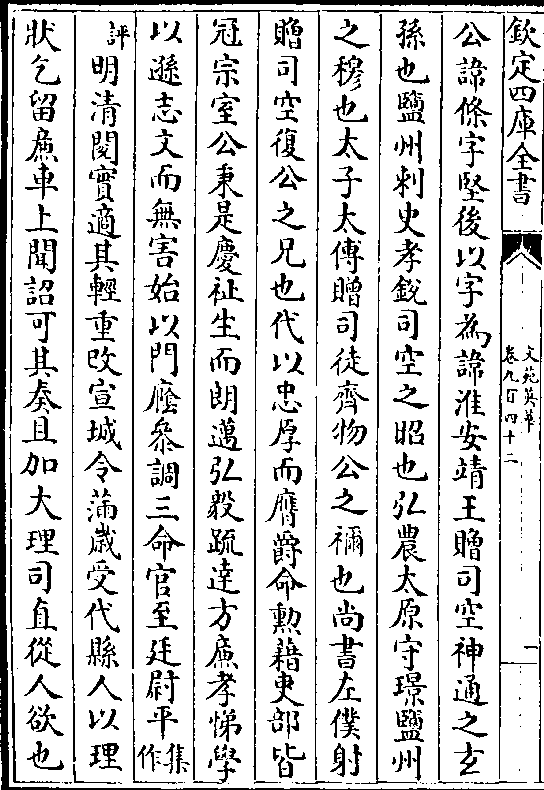 欽定四庫全書
文苑英華
卷九百四十二
一
公諱條字堅後以字為諱淮安靖王贈司空神通之玄
孫也鹽州刺史孝銳司空之昭也弘農太原守璟鹽州
之穆也太子太傅贈司徒齊物公之禰也尚書左僕射
贈司空復公之兄也代以忠厚而膺爵命勲藉吏部皆
冠宗室公秉是慶祉生而朗邁弘毅疏達方亷孝悌學
以遜志文而無害始以門廕叅調三命官至廷尉平集作
評明清閱實適其輕重改宣城令蒲歲受代縣人以理
狀乞留亷車上聞詔可其奏且加大理司直從人欲也